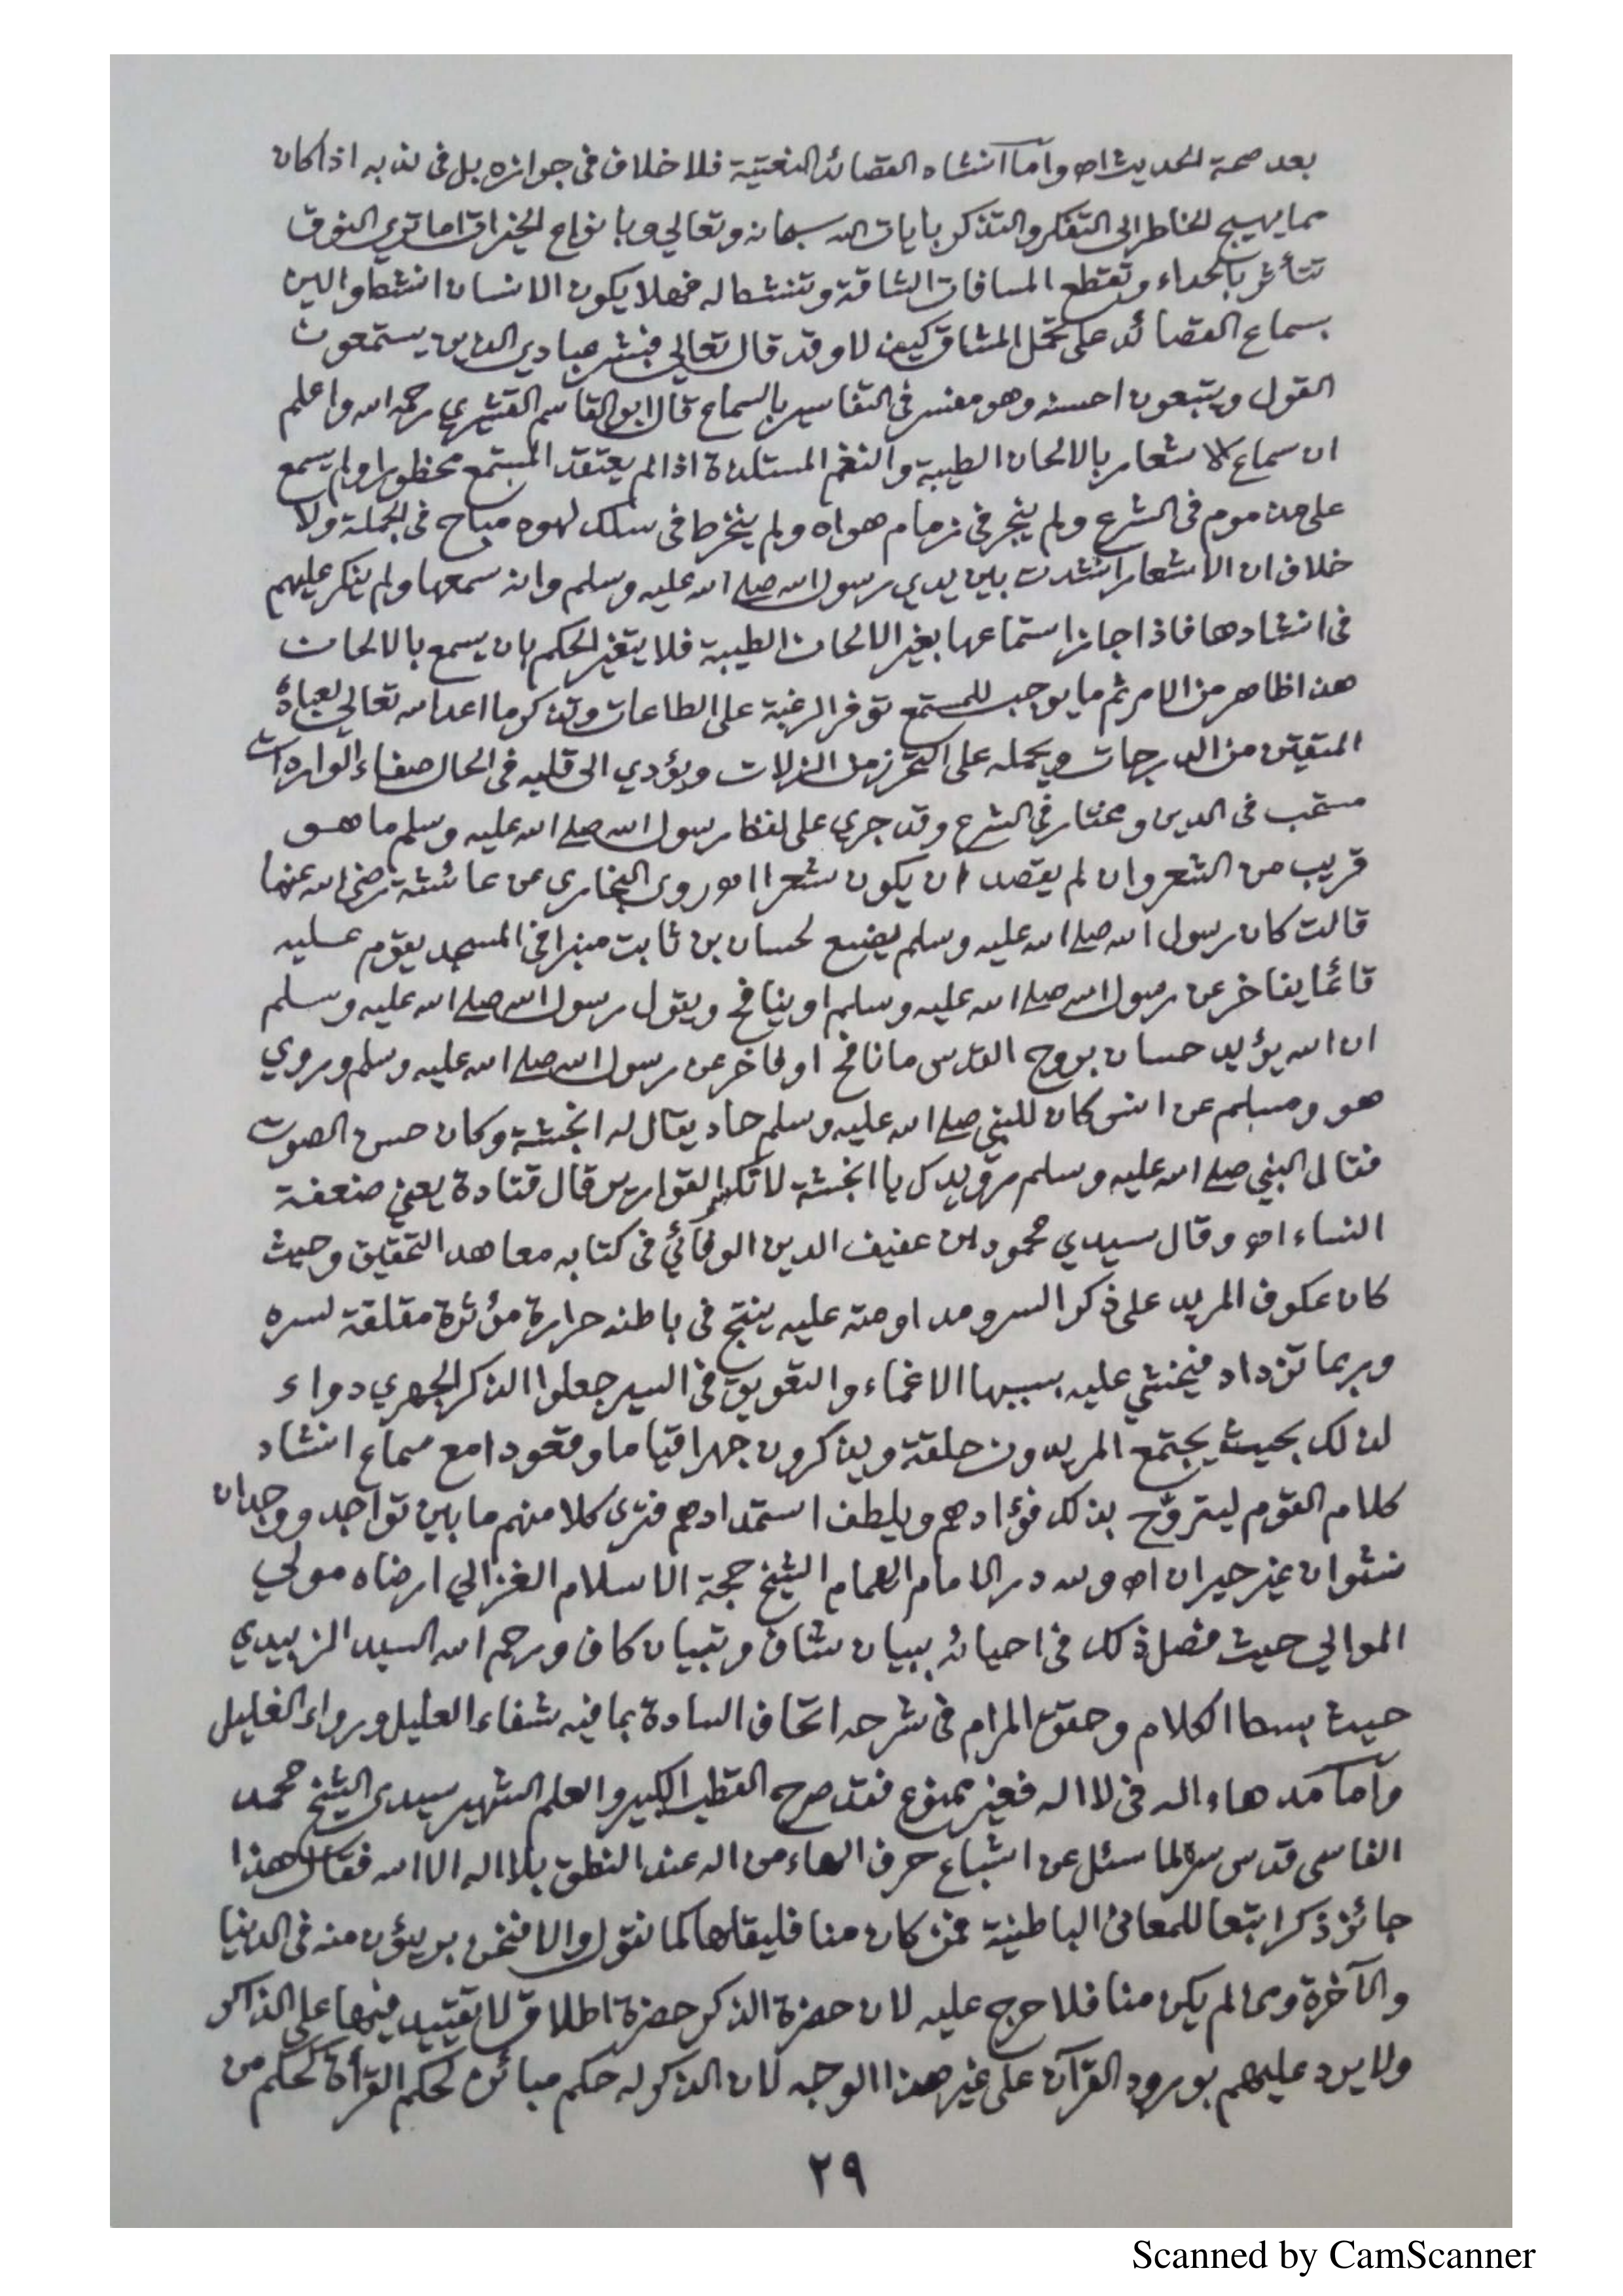 بعد صحة الحديث اه واما انشاد القصائد النعتية فلا خلاف في جوازه بل في ندبه اذا كان
مما يهيج الخاطر الى التفكر والتذكر بايات الله سبحانه وتعالي وبانواع الخيرات اما ترى النوق
تتأثر بالحداء وتقطع المسافات الشاقة وتنشط له فهلا يكون الانسان انشط والين
بسماع القصائد على تحمل المشاق كيف لا وقد قال تعالي فبشر عبادي الذين يستمعون
القول ويتبعون احسنه وهو مفسر في التفاسير بالسماع قال ابو القاسم القشيري رحمه الله واعلم
ان سماع الاشعار بالالحان الطيبة والنغم المستلذة اذا لم يعتقد المستمع محظورا ولم يسمع
على مذموم في الشرع ولم ينجر في زمام هواه ولم ينخرط في سلك لهوه مباح في الجملة ولا
خلاف ان الاشعار انشدت بين يدي رسول الله صلى الله عليه وسلم وانه سمعها ولم ينكر عليهم
في انشادها فاذا جاز استماعها بغير الالحان الطيبة فلا يتغير الحكم بان يسمع بالالحان
هذا ظاهر من الامر ثم ما يوجب للمستمع توفر الرغبة على الطاعات وتذكر ما اعد الله تعالي لعباده
المتقين من الدرجات ويحمله على التحرز من الزلات ويؤدي الى قلبه في الحال صفاء الواردات
مستحب في الدين ومختار في الشرع وقد جرى على لفظ رسول الله صلى الله عليه وسلم ما هو
قريب من الشعر وان لم يقصد ان يكون شعرا اه وروى البخاري عن عائشة رضي الله عنها
قالت كان رسول الله صلى الله عليه وسلم يضع لحسان بن ثابت منبرا في المسجد يقوم عليه
قائما يفاخر عن رسول الله صلى الله عليه وسلم او ينافح ويقول رسول الله صلى الله عليه وسلم
ان الله يؤيد حسان بروح القدس ما نافح او فاخر عن رسول الله صلى الله عليه وسلم وروي
هو ومسلم عن انس كان للنبي صلى الله عليه وسلم حاد يقال له انجشة وكان حسن الصوت
فقال النبي صلى الله عليه وسلم رويدك يا انجشة لا تكسر القوارير قال قتادة يعني ضعفة
النساء اه وقال سيدي محمود بن عفيف الدين الوفائي في كتابه معاهد التحقيق وحيث
كان عكوف المريد على ذكر السر ومداومته عليه ينتج في باطنه حرارة مؤثرة مقلقة لسره
وربما تزداد فيخشي عليه بسببها الاغماء والتعويق في السير جعلوا الذكر الجهري دواء
لذلك بحيث يجتمع المريدون حلقة ويذكرون جهرا قياما وقعودا مع سماع انشاد
كلام القوم ليتروّح بذلك فؤادهم ويلطف استمدادهم فترى كلا منهم ما بين تواجد ووجدان
نشوان غير حيران اه ولله در الامام الهمام الشيخ حجة الاسلام الغزالي ارضاه مولي
الموالي حيث فصل ذلك في احيائه ببيان شاف وتبيان كاف ورحم الله السيد الزبيدي
حيث بسط الكلام وحقق المرام في شرحه اتحاف السادة بما فيه شفاء العليل ورواء الغليل
وأما مد هاء اله في لا اله فغير ممنوع فقد صرح القطب الكبير والعلم الشهير سيدي الشيخ محمد
الفاسي قدس سره لما سئل عن اشباع حرف الهاء من اله عند النطق بلا اله الا الله فقال هذا
جائز ذكرا تبعا للمعاني الباطنية فمن كان منا فليقلها كما نقول والا فنحن بريئون منه في الدنيا
والآخرة ومن لم يكن منا فلا حرج عليه لان حضرة الذكر حضرة اطلاق لا تقييد فيها على الذاكر
ولا يرد عليهم بورود القرآن على غير هذا الوجه لان الذكر له حكم مبائن لحكم القرأة كحكم من
٢٩
Scanned by CamScanner